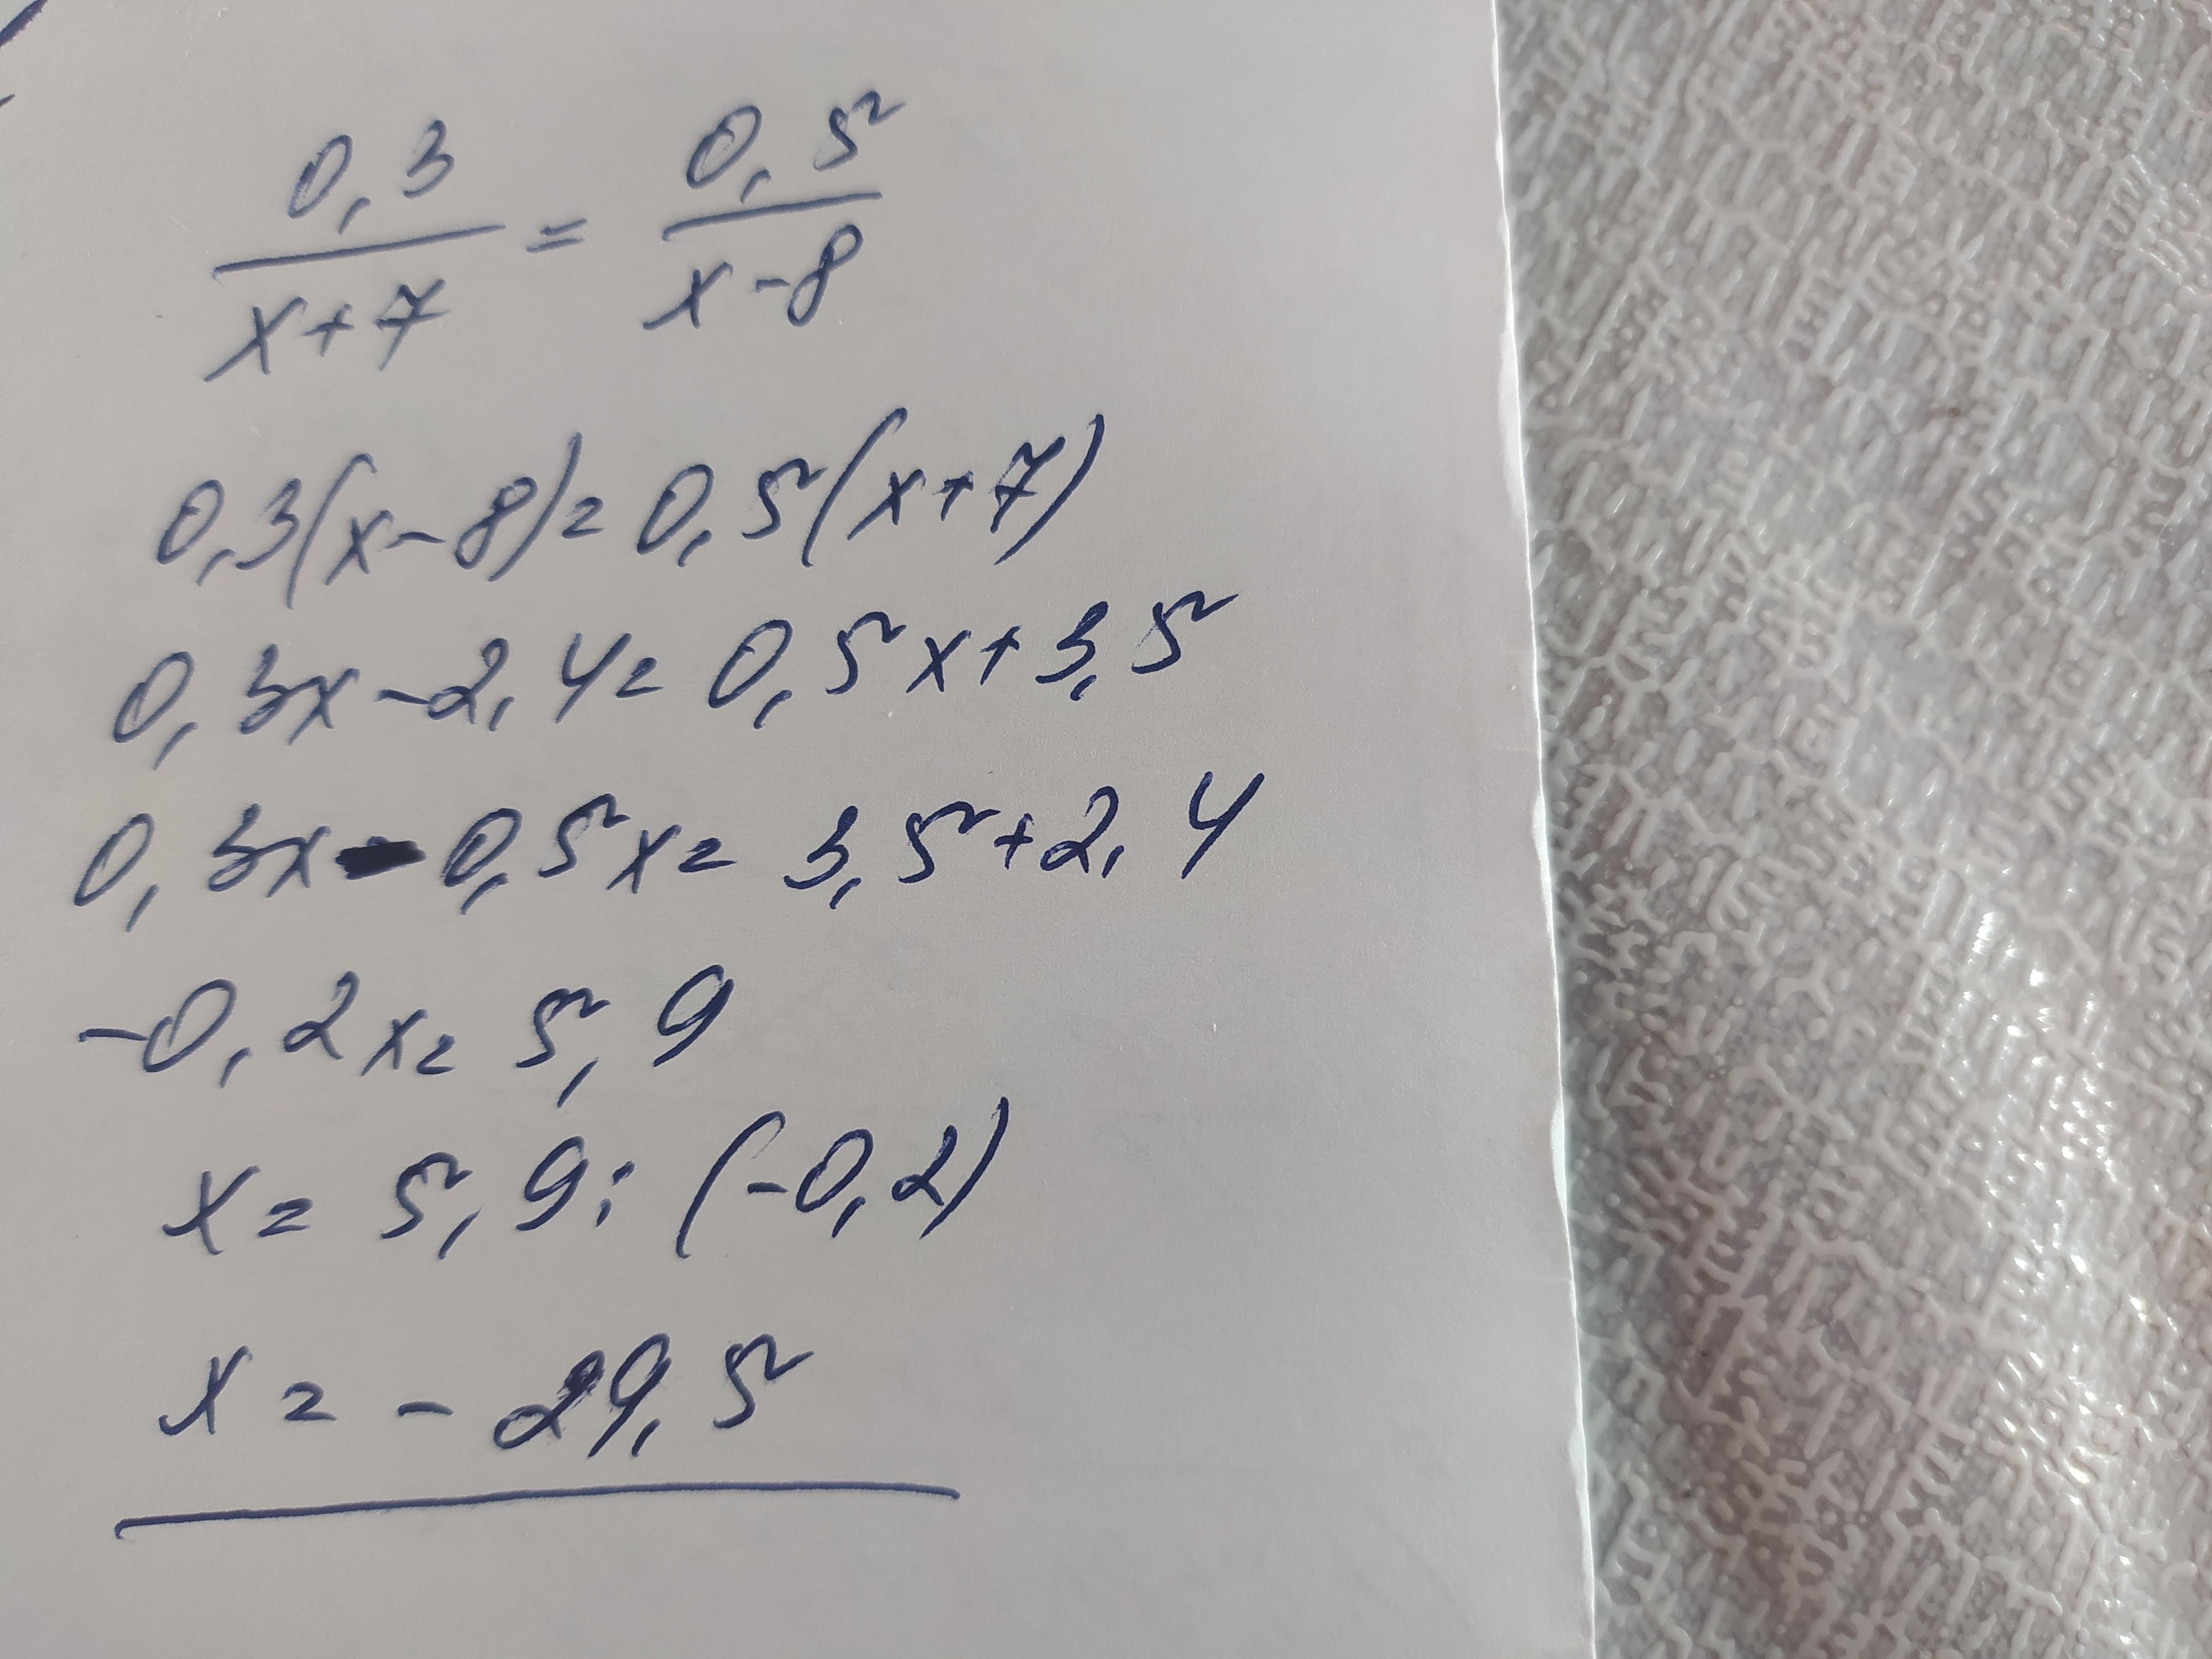 0,3/(x+7) = 0,5/(x-8)
0,3(x-8)=0,5(x+7)
0,3x-2,4=0,5x+3,5
0,3x-0,5x=3,5+2,4
-0,2x=5,9
x=5,9:(-0,2)
x=-29,5